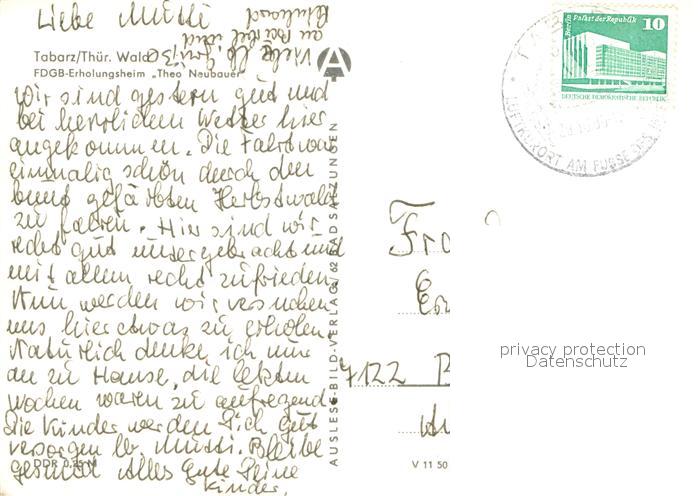 Liebe Mutti
Tabarz/Thür. Wald
FDGB-Erholungsheim „Theo Neubauer“
Wir sind gestern gut und
bei herrlichem Wetter hier
angekommen. Die Fahrt war
einmalig schön durch den
bunt gefärbten Herbstwald
zu fahren. Hier sind wir
recht gut untergebracht und
mit allem recht zufrieden.
Nun werden wir versuchen
uns hier etwas zu erholen.
Natürlich denke ich nur
an zu Hause, die letzten
Wochen waren zu aufregend.
Die Kinder werden Dich gut
versorgen lb. Mutti. Bleibe
gesund Alles Gute Deine
Kinder.
DDR 0,25 M
Viele lb. Grüße
an und
AUSLESE-BILD-VERLAG, 62 BAD SALZUNGEN
A
V 11 50
Berlin Palast der Republik 10
DEUTSCHE DEMOKRATISCHE REPUBLIK
LUFTKURORT AM FUSSE DES
Fra
7122
privacy protection
Datenschutz